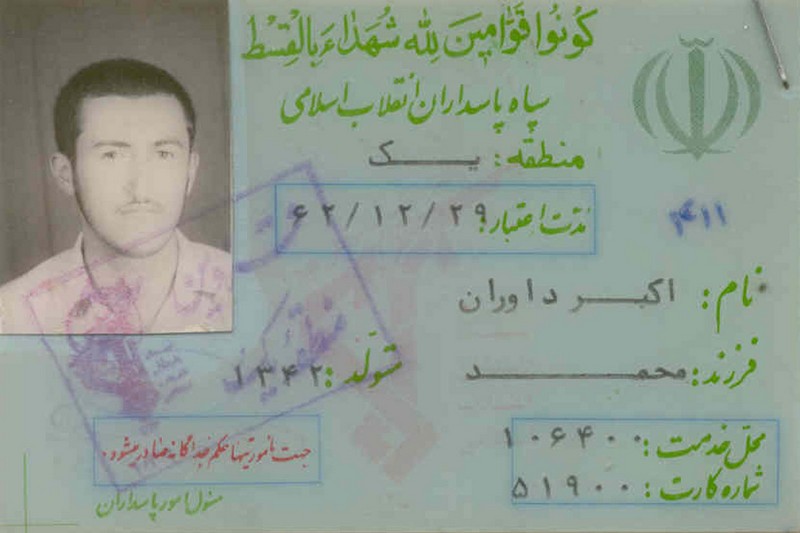 كُونُوا قَوَّامِينَ لِلَّهِ شُهَدَاءَ بِالْقِسْطِ
سپاه پاسداران انقلاب اسلامی
منطقه: یک
مدت اعتبار: ۶۲/۱۲/۲۹
۴۱۱
نام: اکبر داوران
فرزند: محمد
متولد: ۱۳۴۲
محل خدمت: ۱۰۶۴۰۰
شماره کارت: ۵۱۹۰۰
جهت مأموریتها حکم جداگانه صادر میشود.
مسئول امور پاسداران
منطقه یک